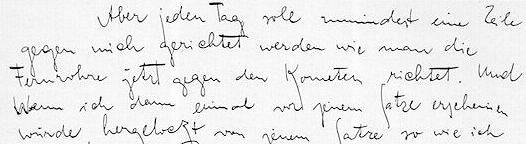 Aber jeden Tag soll mindest eine Zeile
gegen mich gerichtet werden wie man die
Fernrohre jetzt gegen den Kometen richtet. Und
wenn ich dann einmal vor jenem Satze erscheinen
würde hergelockt von jenem Satze so wie ich